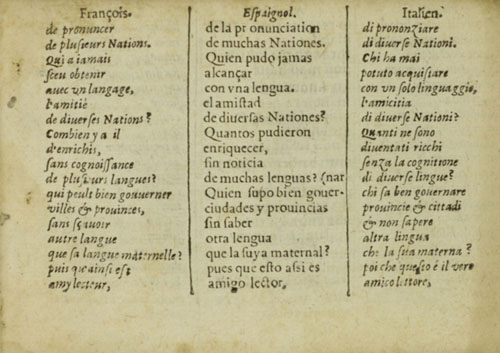 François.
de pronuncer
de plusieurs Nations.
Qui a iamais
sceu obtenir
auec vn langage,
l'amitié
de diuerses Nations?
Combien y a il
d'enrichis,
sans cognoissance
de plusieurs langues?
qui peult bien gouuerner
villes & prouinces,
sans sçauoir
autre langue
que sa langue maternelle?
puis que ainsi est
amy lecteur,
Espaignol.
de la pronunciation
de muchas Nationes.
Quien pudo jamas
alcançar
con vna lengua.
el amistad
de diuersas Nationes?
Quantos pudieron
enriquecer,
sin noticia
de muchas lenguas? (nar
Quien supo bien gouer-
ciudades y prouincias
sin saber
otra lengua
que la suya maternal?
pues que esto assi es
amigo lector,
Italien.
di prononziare
di diuerse Nationi.
Chi ha mai
potuto acquistare
con vn solo linguaggio,
l'amicitia
di diuerse Nationi?
Quanti ne sono
diuentati ricchi
senza la cognitione
di diuerse lingue?
chi sa ben gouernare
prouincie & cittadi
& non sapere
altra lingua
che la sua materna?
poi che questo é il vero
amico lettore,